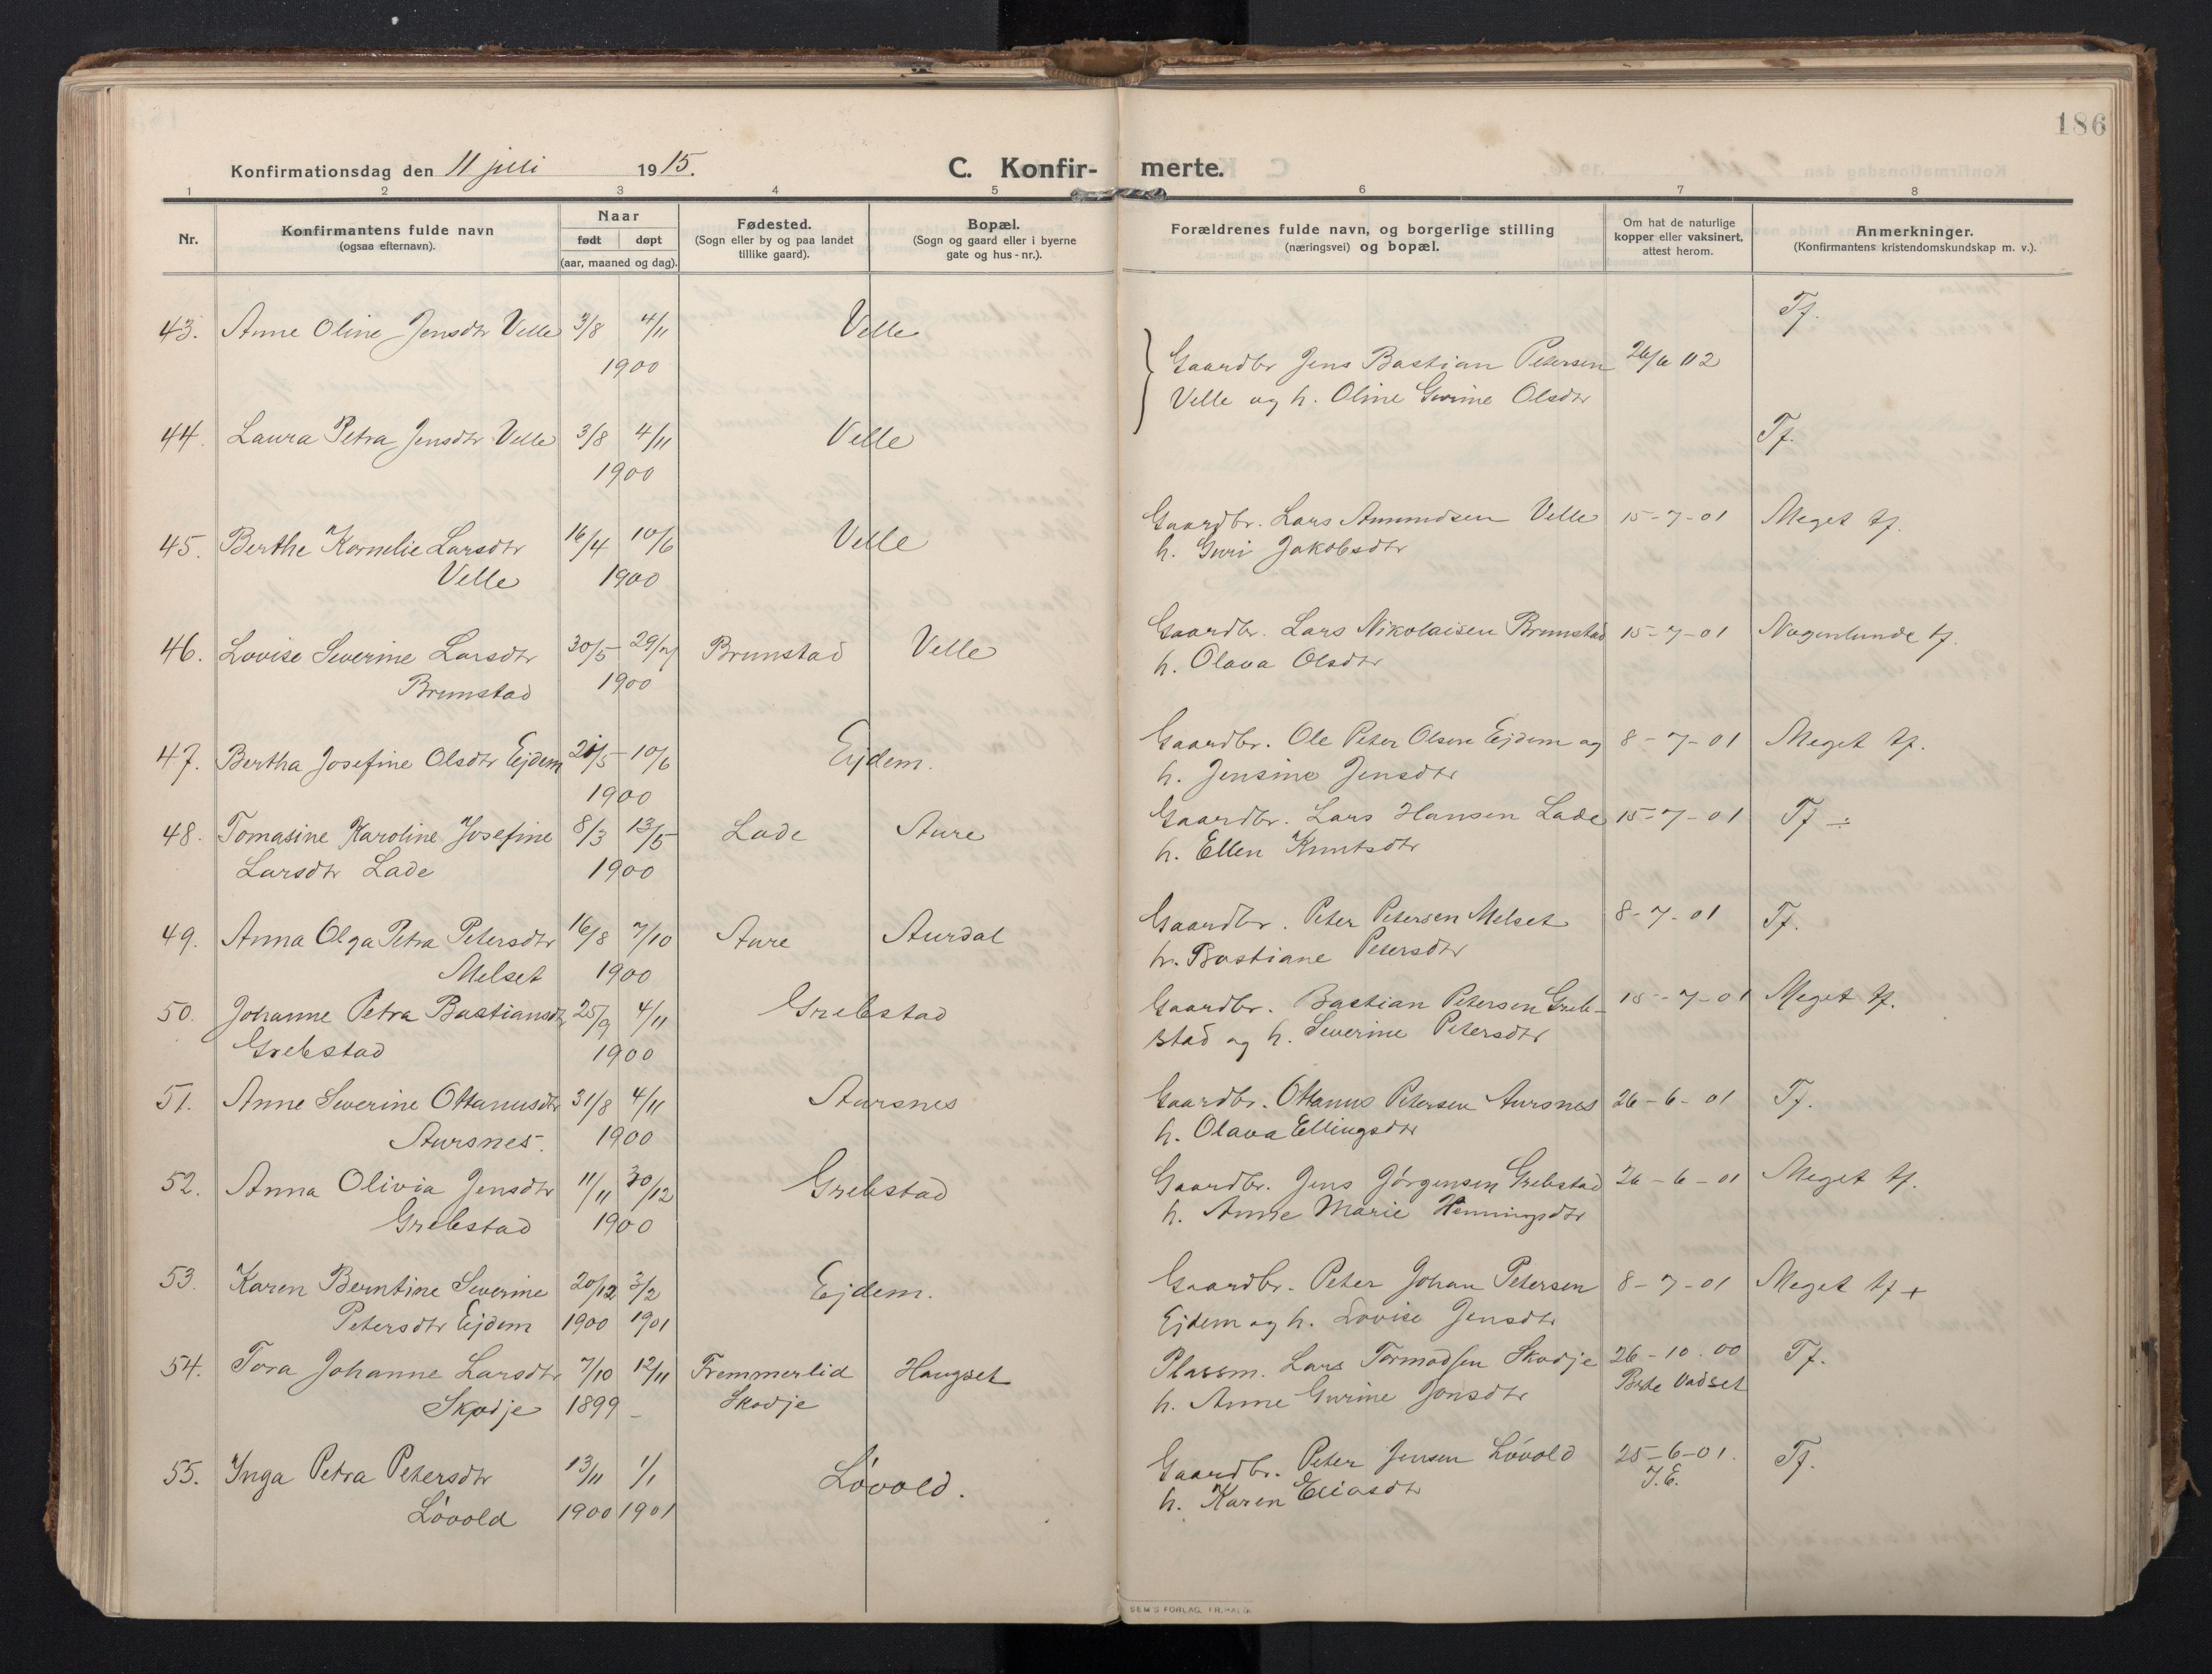 186
Konfirmationsdag den 11 juli 1915. C. Konfir- merte.
1 2 3 4 5 6 7 8
Nr.
Konfirmantens fulde navn
(ogsaa efternavn).
Naar
født døpt
(aar, maaned og dag).
Fødested.
(Sogn eller by og paa landet
tillike gaard).
Bopæl.
(Sogn og gaard eller i byerne
gate og hus-nr.).
Forældrenes fulde navn, og borgerlige stilling
(næringsvei) og bopæl.
Om hat de naturlige
kopper eller vaksinert,
attest herom.
Anmerkninger.
(Konfirmantens kristendomskundskap m. v.).
43. Anne Oline Jensdtr Velle 3/8 4/11 Velle Tf.
1900
Gaardbr Jens Bastian Petersen 26/6 02
Velle og h. Oline Gurine Olsdtr
44. Laura Petra Jensdtr Velle 3/8 4/11 Velle Tf.
1900
45. Berthe Kornelie Larsdtr 16/4 10/6 Velle Gaardbr. Lars Amundsen Velle 15-7-01 Meget tf.
Velle 1900 h. Guri Jakobsdtr
46. Lovise Severine Larsdtr 30/5 29/7 Brunstad Velle Gaardbr. Lars Nikolaisen Brunstad 15-7-01 Nogenlunde tf.
Brunstad 1900 h. Olava Olsdtr
47. Bertha Josefine Olsdtr Ejdem 21/5 10/6 Ejdem. Gaardbr. Ole Peter Olsen Ejdem og 8-7-01 Meget tf.
1900 h. Jensine Jensdtr
48. Tomasine Karoline Josefine 8/3 13/5 Lade Aure Gaardbr. Lars Hansen Lade 15-7-01 Tf ÷
Larsdtr Lade 1900 h. Ellen Knutsdtr
49. Anna Olga Petra Petersdtr 16/8 7/10 Aure Aurdal Gaardbr. Peter Petersen Melset 8-7-01 Tf.
Melset 1900 h. Bastiane Petersdtr
50. Johanne Petra Bastiansdtr 25/9 4/11 Grebstad Gaardbr. Bastian Petersen Greb- 15-7-01 Meget tf.
Grebstad 1900 stad og h. Severine Petersdtr
51. Anne Severine Ottanusdtr 31/8 4/11 Aursnes Gaardbr. Ottanus Petersen Aursnes 26-6-01 Tf.
Aursnes. 1900 h. Olava Ellingsdtr
52. Anna Olivia Jensdtr 11/11 30/12 Grebstad Gaardbr. Jens Jørgensen Grebstad 26-6-01 Meget tf.
Grebstad 1900 h. Anne Marie Henningsdtr
53. Karen Berntine Severine 20/12 3/2 Ejdem. Gaardbr. Peter Johan Petersen 8-7-01 Meget tf +
Petersdtr Ejdem 1900 1901 Ejdem og h. Lovise Jensdtr
54. Tora Johanne Larsdtr 7/10 12/11 Fremmerlid Haugset Plassm. Lars Tormodsen Skodje 26-10.00 Tf.
Skodje 1899 - Skodje h. Anne Gurine Jonsdtr Vadset
55. Inga Petra Petersdtr 13/11 1/1 Løvold. Gaardbr. Peter Jensen Løvold 25-6-01. Tf.
Løvold 1900 1901 h. Karen Eliasdtr J.E.
SEM'S FORLAG, FR.HALD.